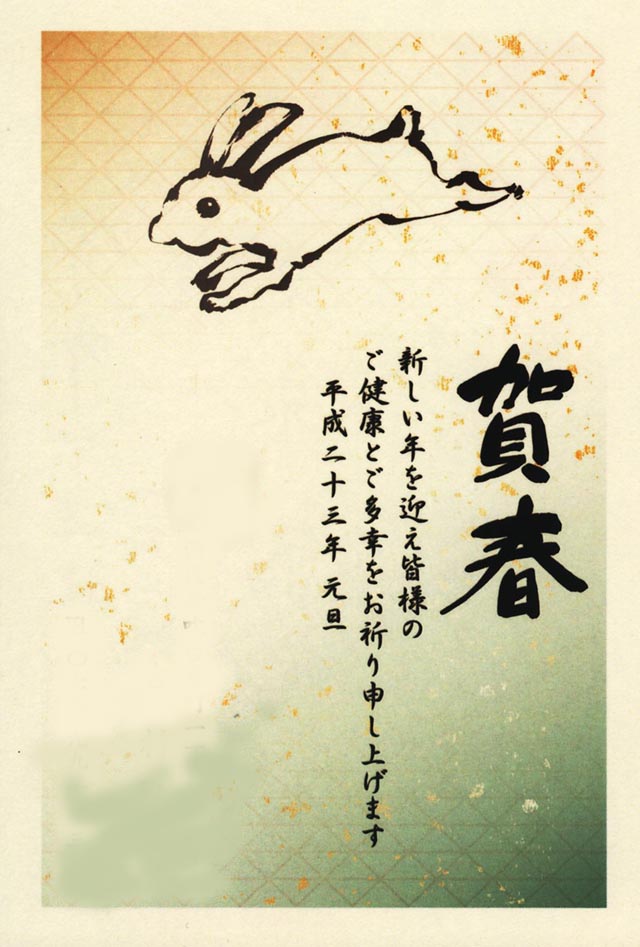 賀春
新しい年を迎え皆様の
ご健康とご多幸をお祈り申し上げます
平成二十三年 元旦